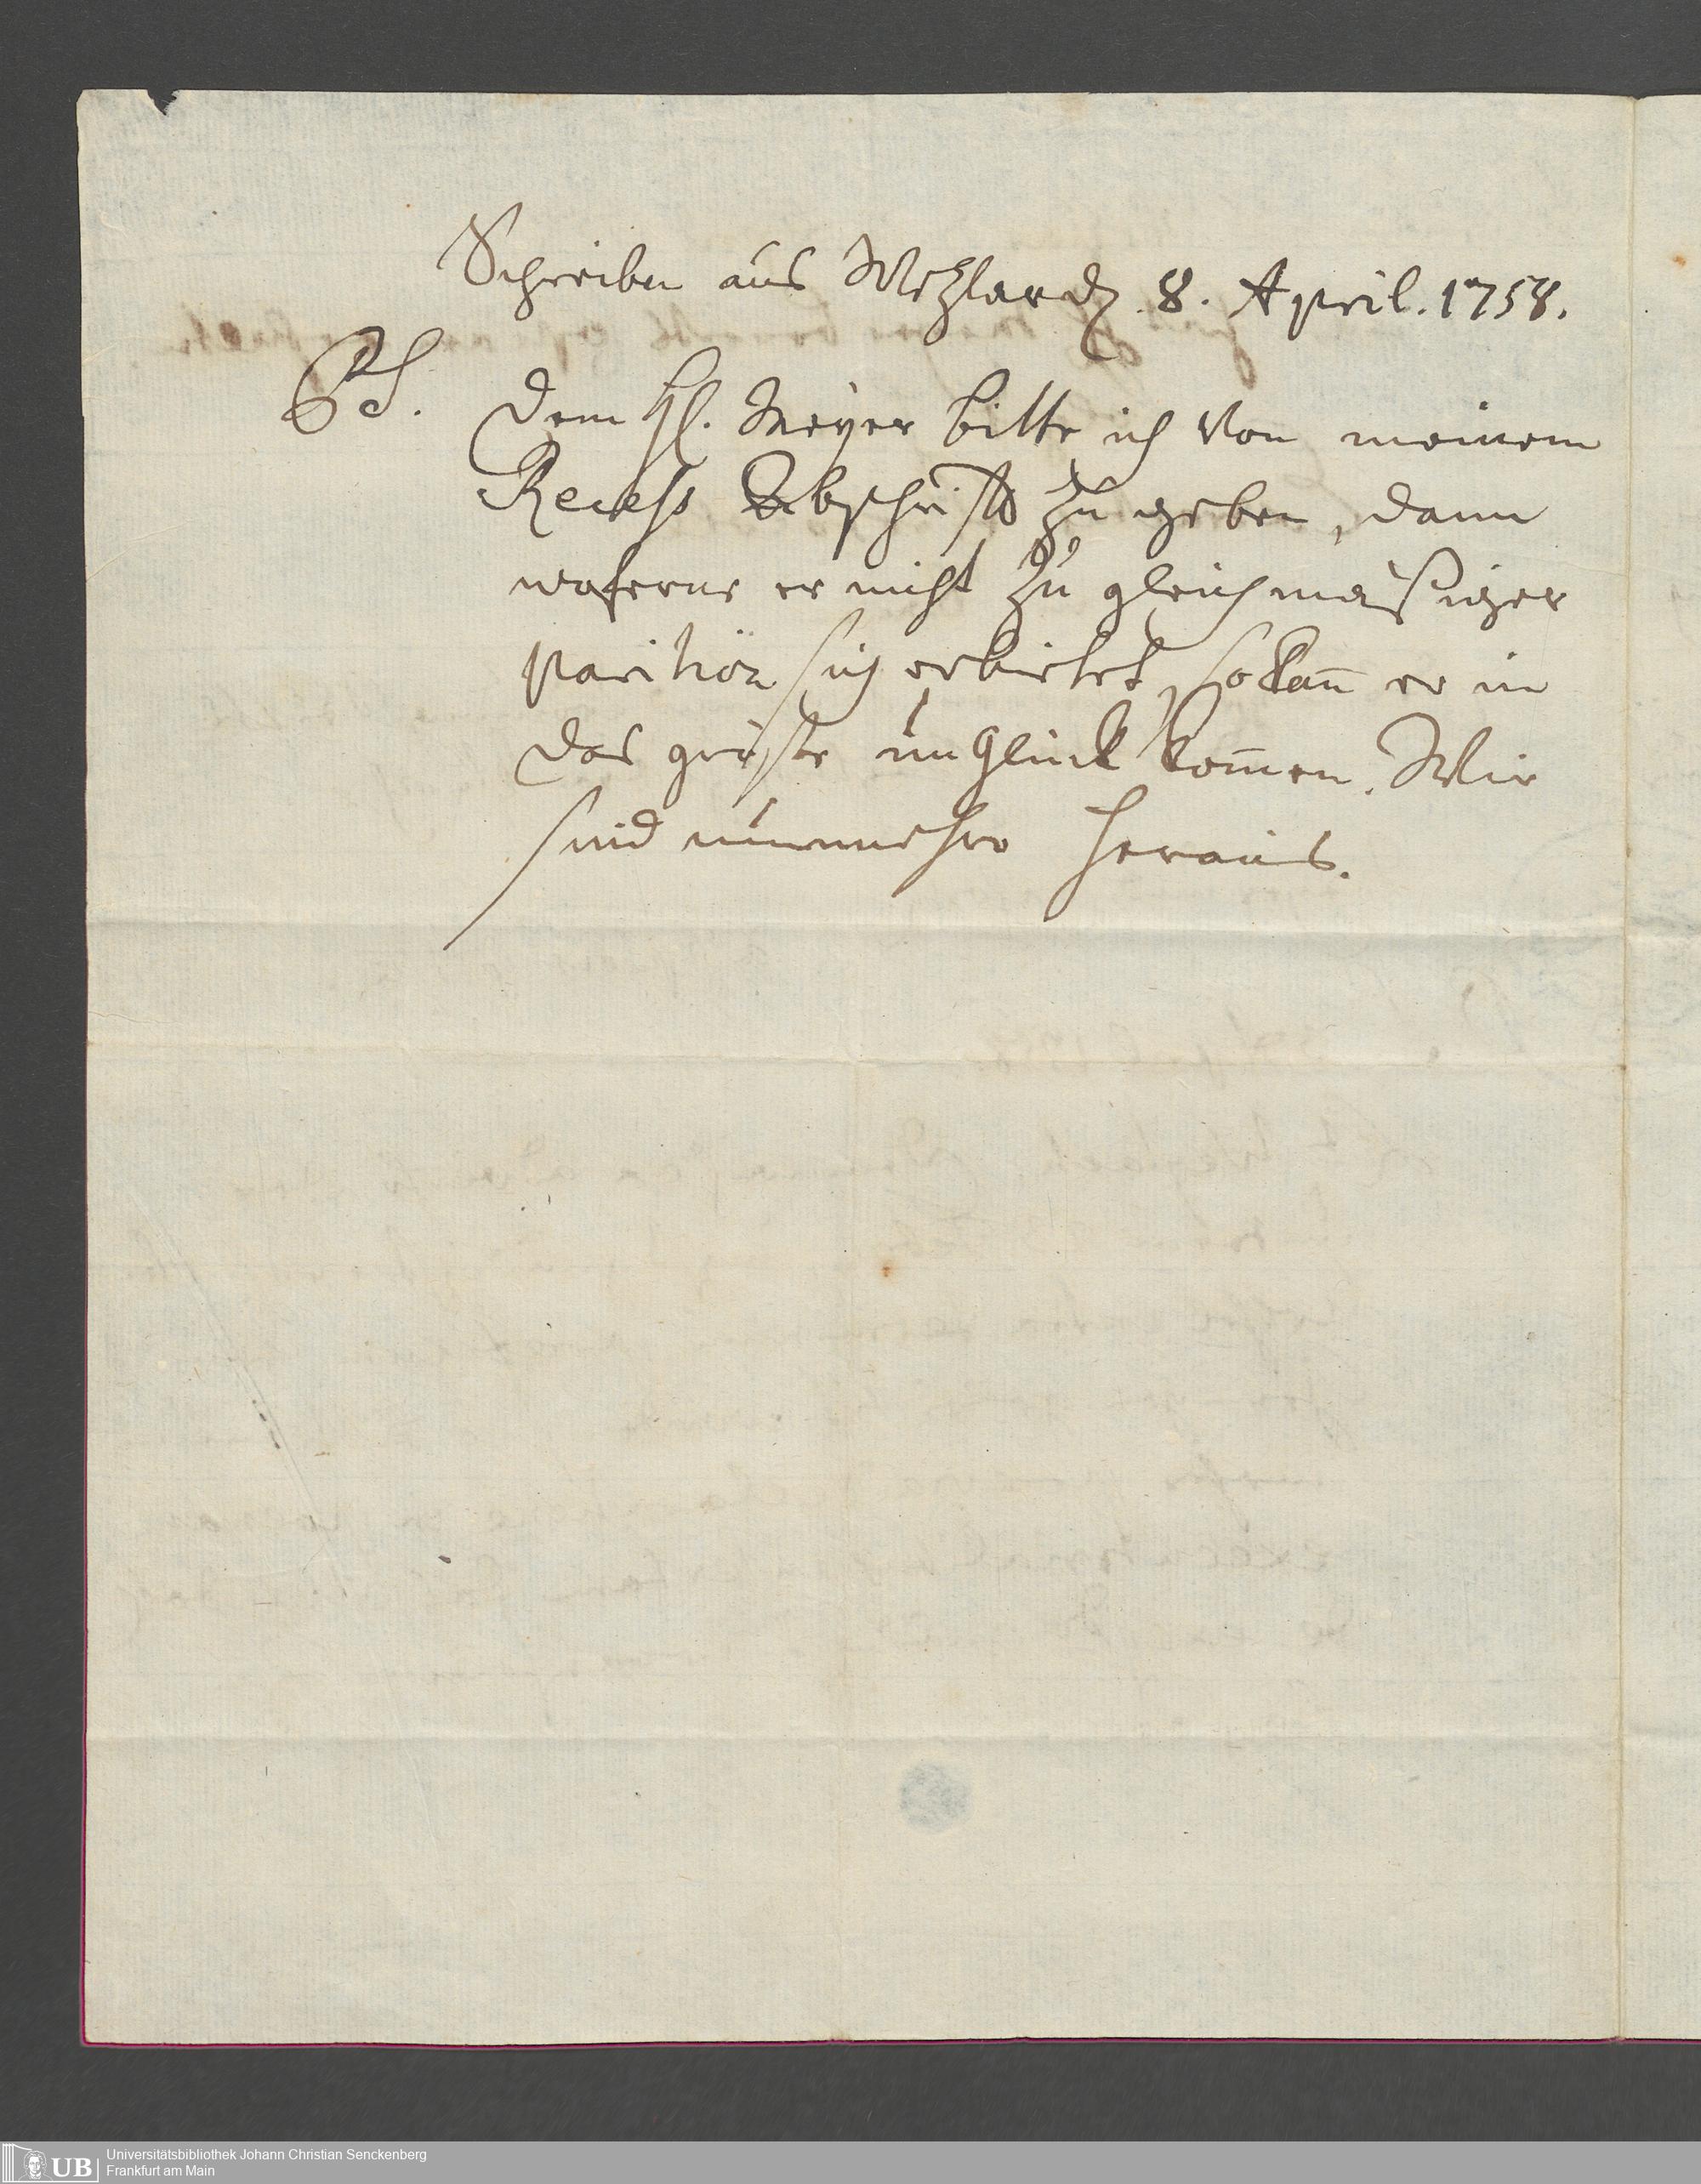 Schreiben aus Wezlar d. 8. April. 1758.
PS. Dem H. Meyer bitte ich von meinem
Recess Abschrifft zu geben, dann
woferne er nicht zu gleichmäßiger
parition sich erbietet, so kan̄ er in
das gröste unglück kom̄en. Wir
sind nunmehro heraus.
UB Universitätsbibliothek Johann Christian Senckenberg
Frankfurt am Main